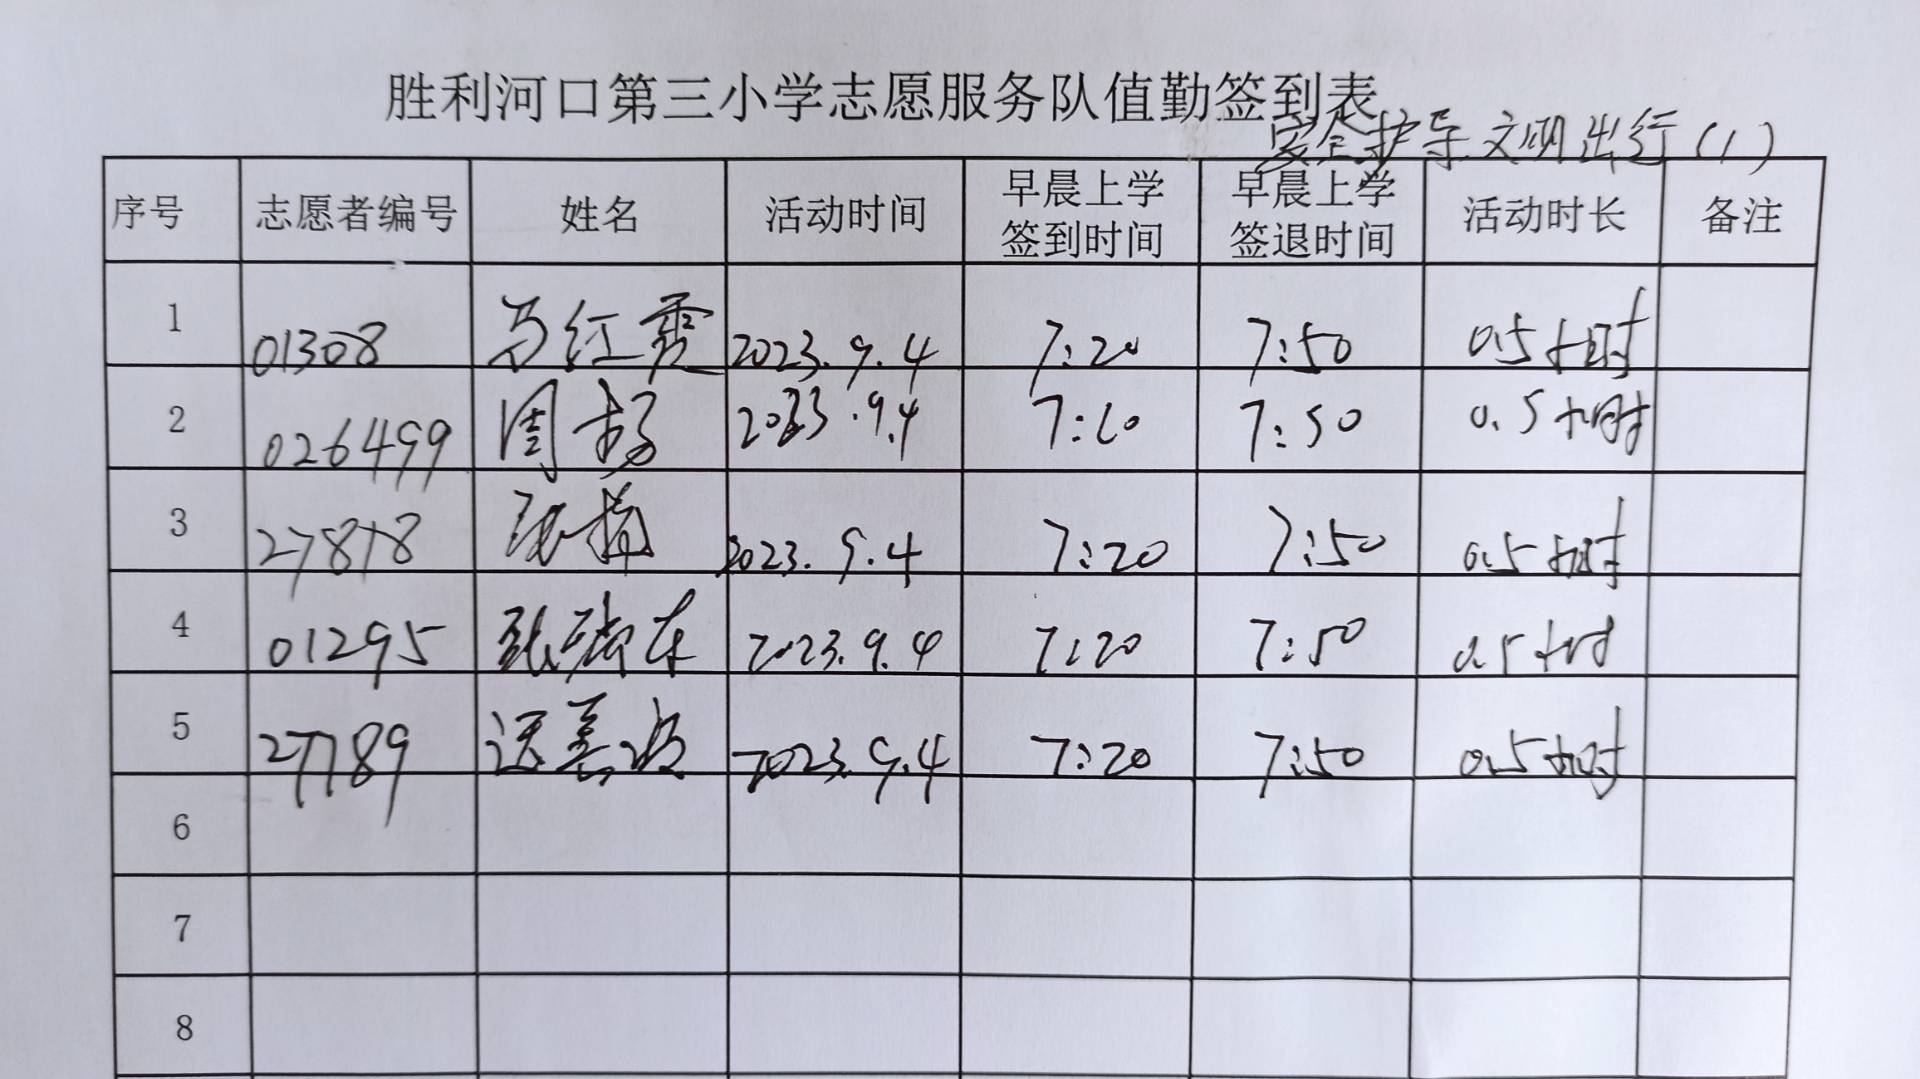 胜利河口第三小学志愿服务队值勤签到表
安全护导.文明出行(1)
序号 志愿者编号 姓名 活动时间 早晨上学签到时间 早晨上学签退时间 活动时长 备注
1 01308 马红霞 2023.9.4 7:20 7:50 0.5小时
2 026499 周杨 2023.9.4 7:50 0.5小时
3 27878 张 2023.9.4 7:20 7:50 0.5小时
4 01295 张瑞东 2023.9.4 7:20 7:50 0.5小时
5 27789 2023.9.4 7:20 7:50 0.5小时
6
7
8